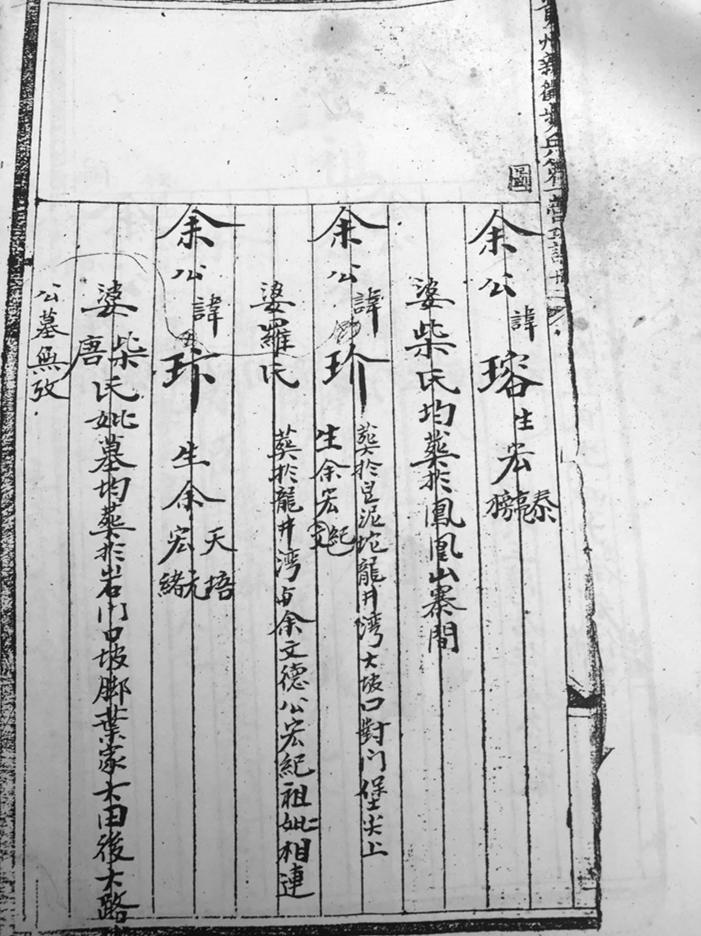 余公諱瑢生宏泰亨
婆柴氏均葬於鳳凰山寨間
余公諱玠生余宏紀文
葬於皇泥坨龍井湾大坡口對门堡尖上
婆羅氏葬於龍井湾与余文德公宏紀祖妣相連
余公諱玣生余天培宏元緒
婆柴唐氏妣墓均葬於岩门口坡脚葉家大田後大路
公墓無攷